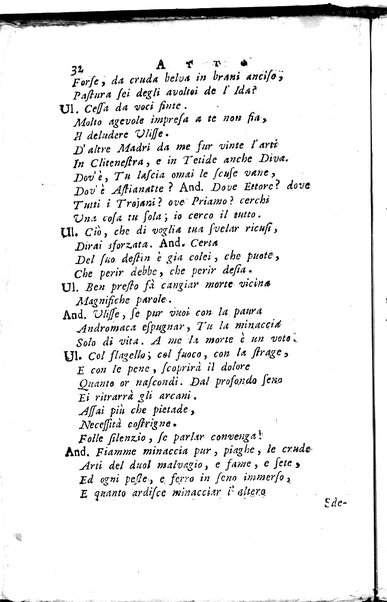 32 A T T O
Forse, da cruda belva in brani anciso,
Pastura sei degli avoltoi de l'Ida?
Ul. Cessa da voci finte.
Molto agevole impresa a te non fia,
Il deludere Ulisse.
D'altre Madri da me fur vinte l'arti
In Clitenestra, e in Tetide anche Diva.
Dov'è, Tu lascia omai le scuse vane,
Dov'è Astianatte? And. Dove Ettore? dove
Tutti i Trojani? ove Priamo? cerchi
Una cosa tu sola; io cerco il tutto.
Ul. Ciò, che di voglia tua svelar ricusi,
Dirai sforzata. And. Certa
Del suo destin è gia colei, che puote,
Che perir debbe, che perir desia.
Ul. Ben presto fà cangiar morte vicina
Magnifiche parole.
And. Ulisse, se pur vuoi con la paura
Andromaca espugnar, Tu la minaccia
Solo di vita. A me la morte è un voto.
Ul. Col flagello; col fuoco, con la strage,
E con le pene, scoprirà il dolore
Quanto or nascondi. Dal profondo seno
Ei ritrarrà gli arcani.
Assai più che pietade,
Necessità costrigne.
Folle silenzio, se parlar convenga!
And. Fiamme minaccia pur, piaghe, le crude
Arti del duol malvagio, e fame, e sete,
Ed ogni peste, e ferro in seno immerso,
E quanto ardisce minacciar l'altero
Ede-